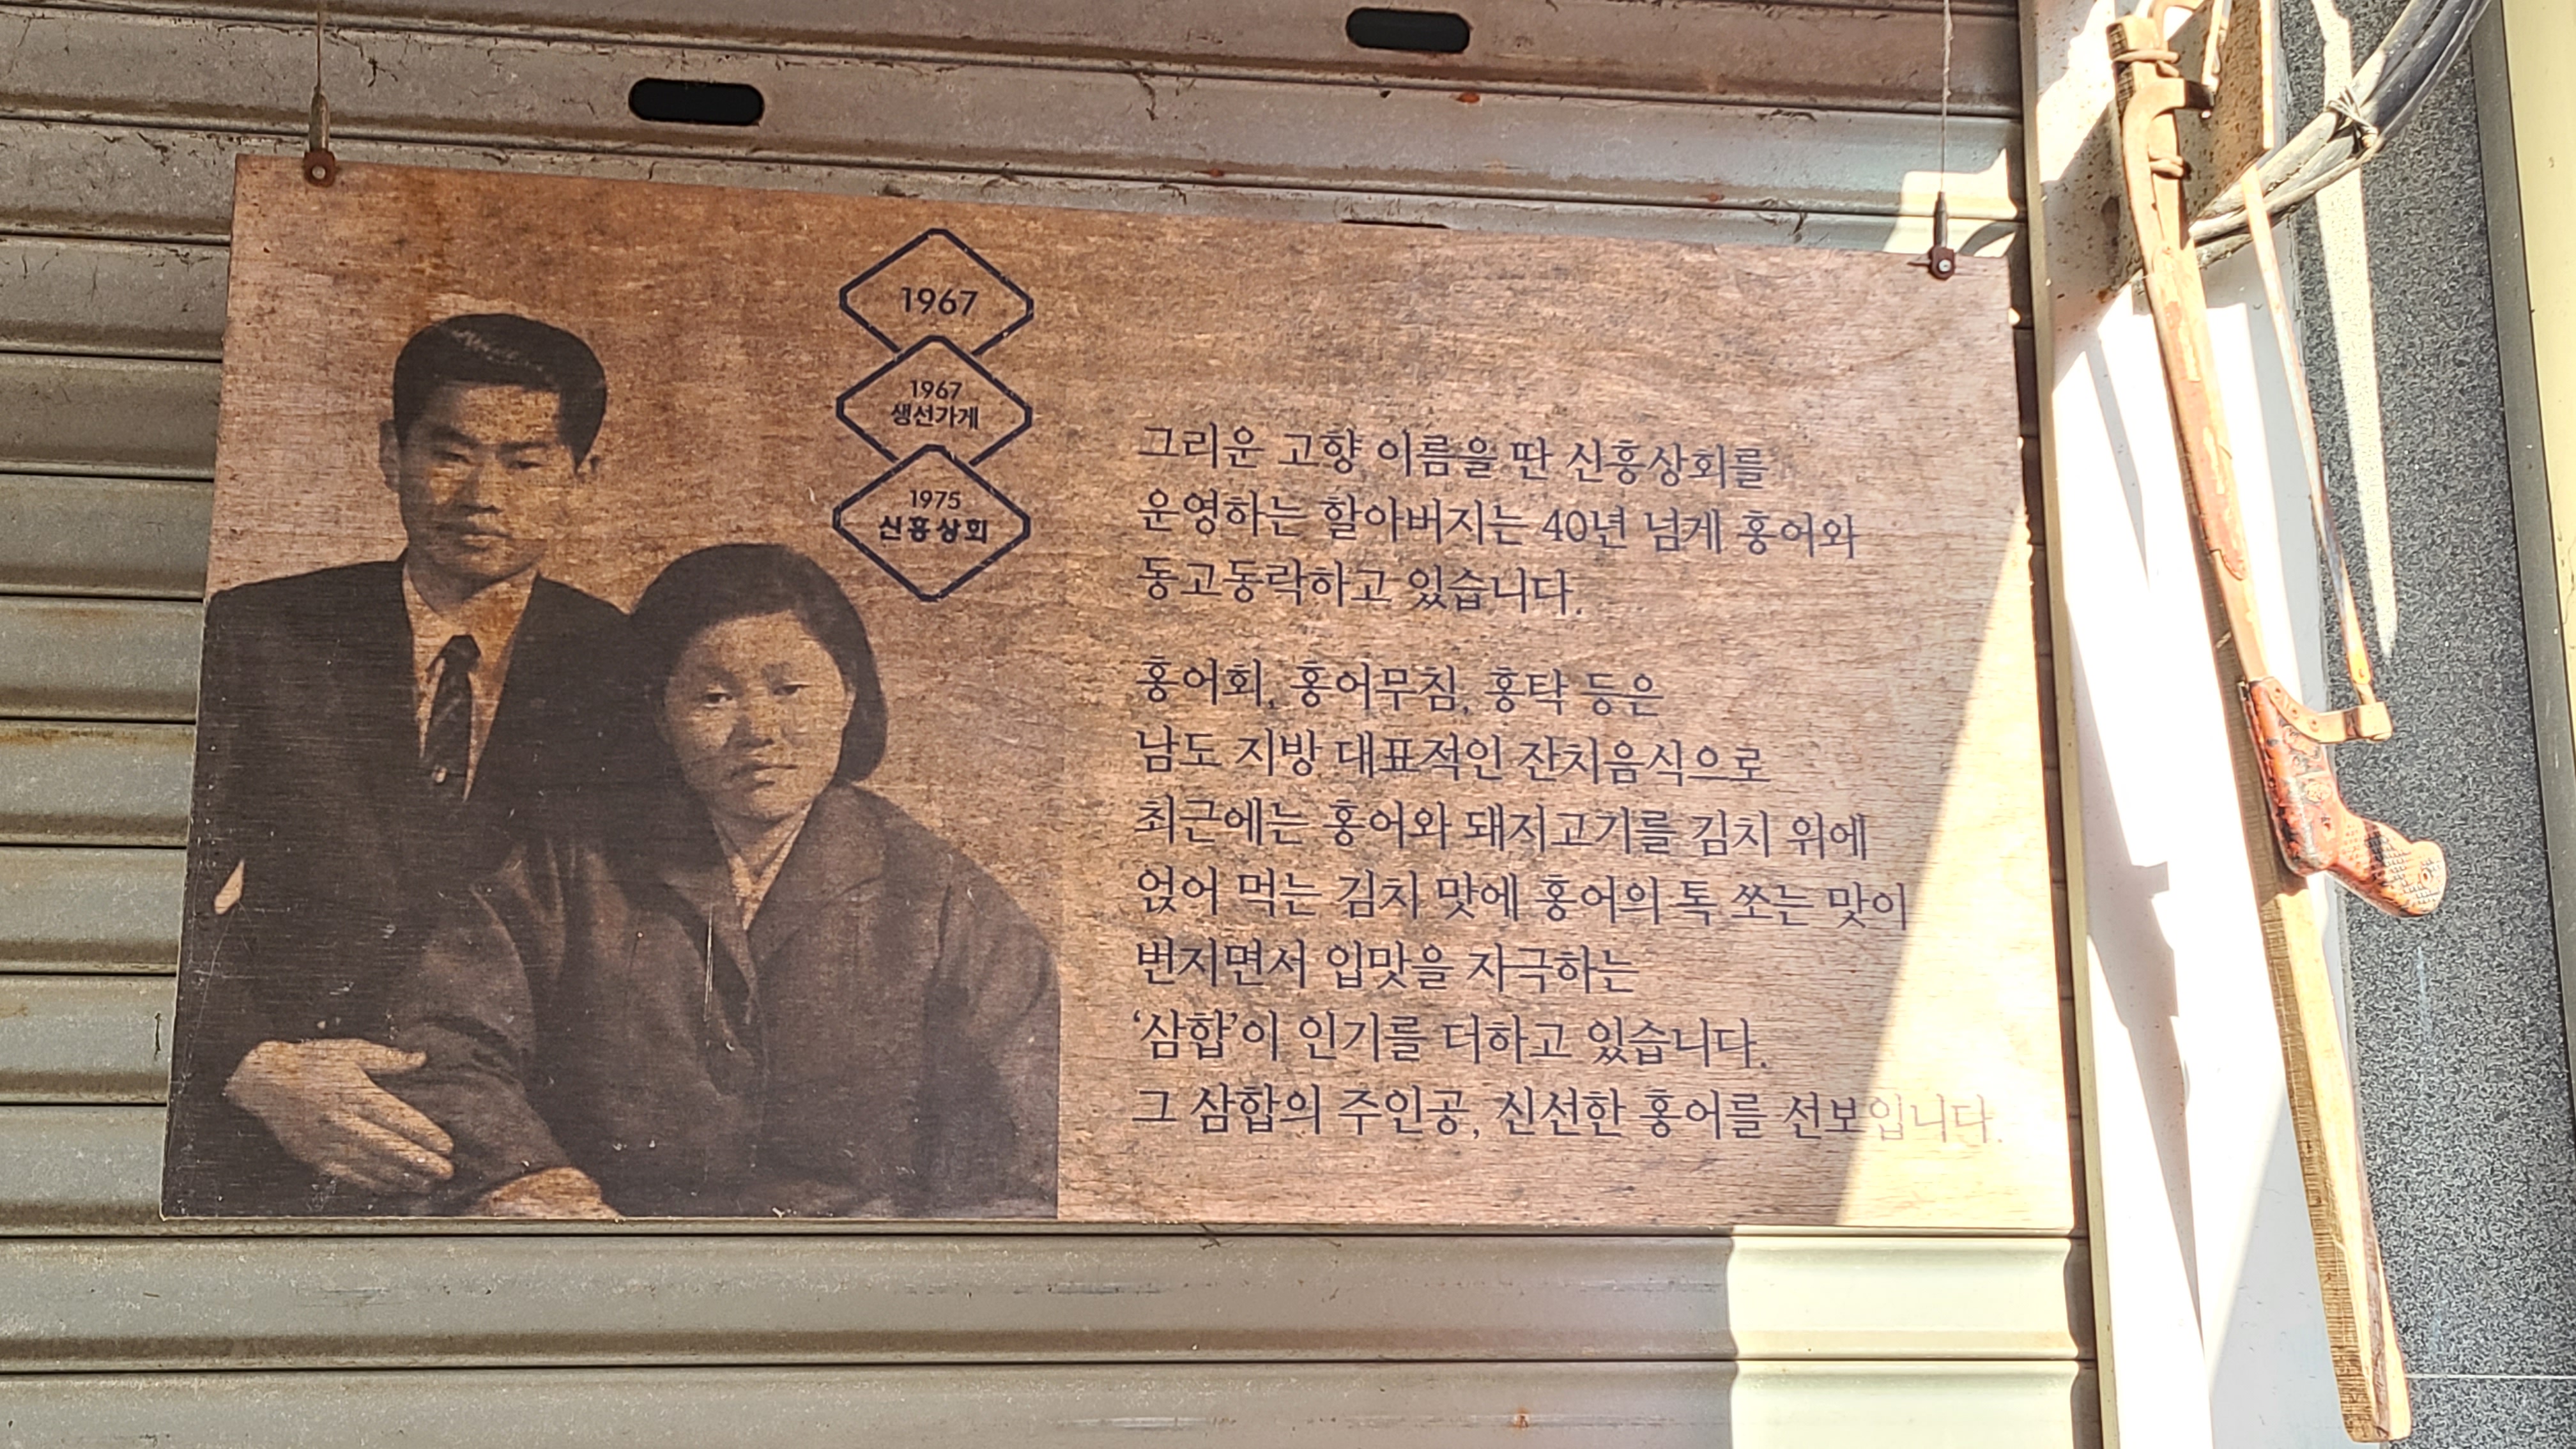 1967
1967
생선가게
1975
신흥상회
그리운 고향 이름을 딴 신흥상회를
운영하는 할아버지는 40년 넘게 홍어와
동고동락하고 있습니다.
홍어회, 홍어무침, 홍탁 등은
남도 지방 대표적인 잔치음식으로
최근에는 홍어와 돼지고기를 김치 위에
얹어 먹는 김치 맛에 홍어의 톡 쏘는 맛이
번지면서 입맛을 자극하는
‘삼합’이 인기를 더하고 있습니다.
그 삼합의 주인공, 신선한 홍어를 선보입니다.